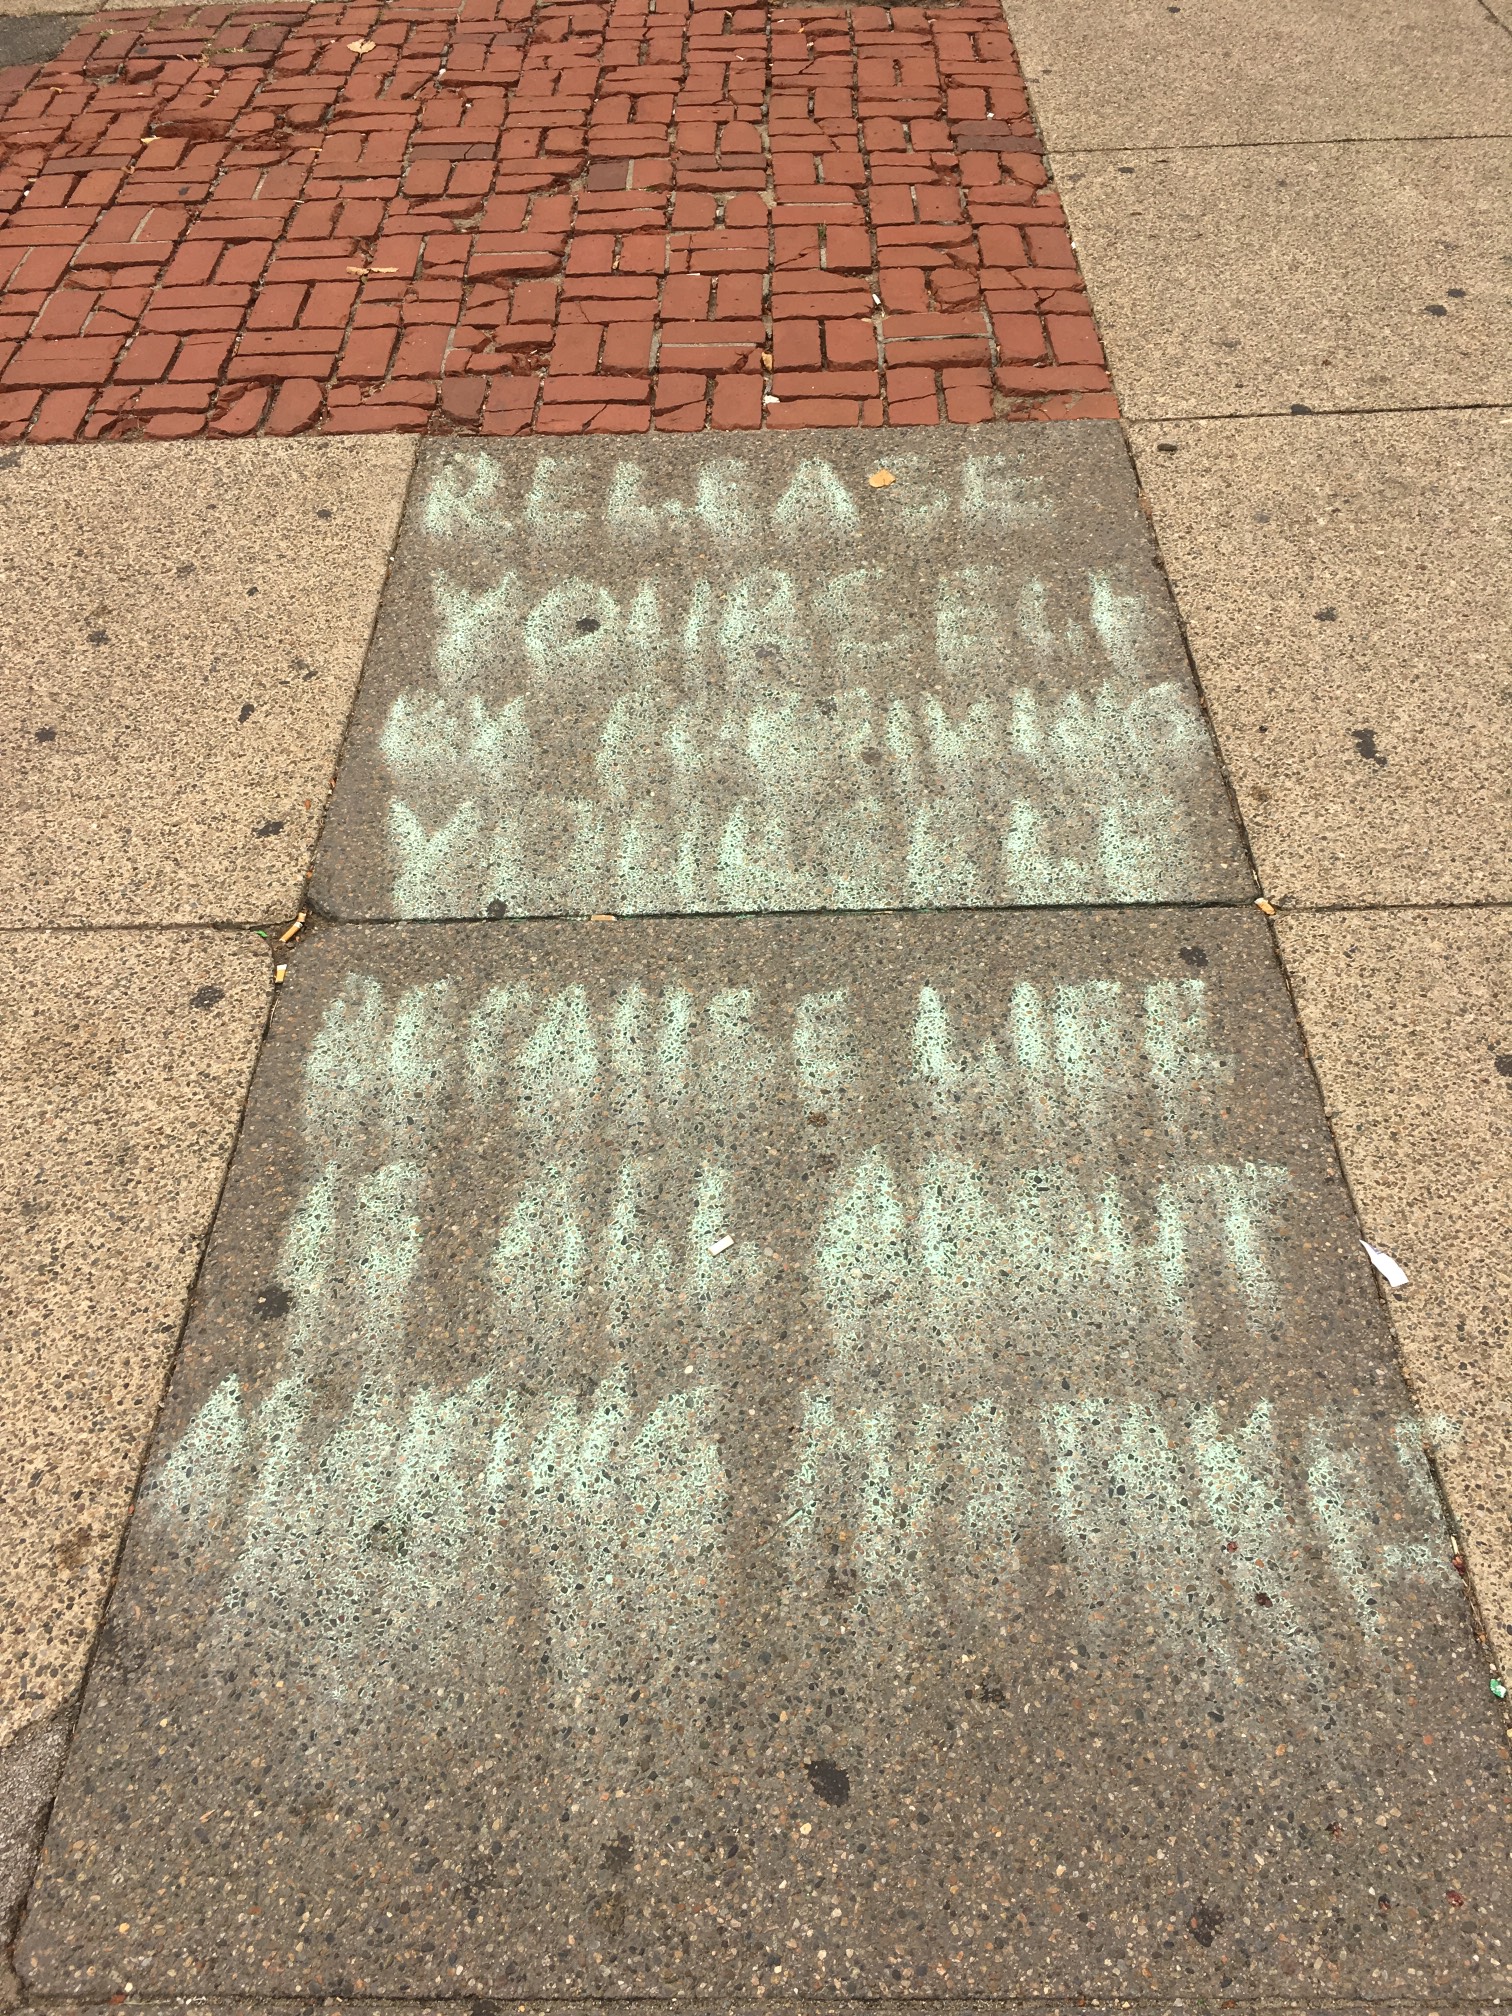 RELEASE
YOURSELF
BY
YOURSELF
BECAUSE LIFE
IS ALL ABOUT
MAKING